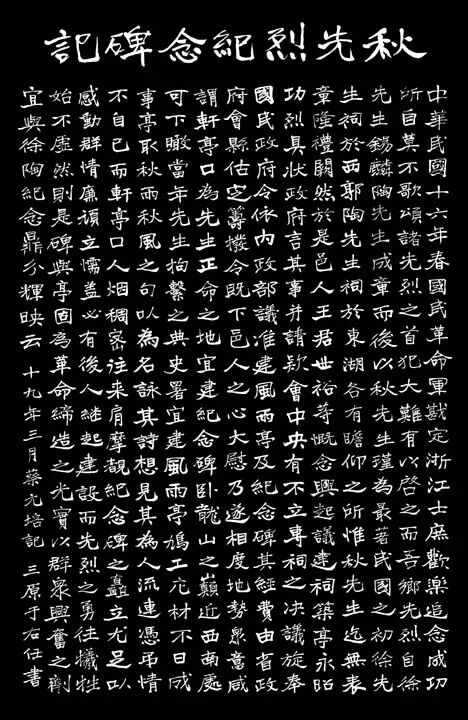 秋先烈紀念碑記
中華民國十六年春國民革命軍戡定浙江士庶歡樂追念成功
所自莫不歌頌諸先烈之首犯大難有以啓之而吾鄉先烈自徐
先生錫麟陶先生成章而後以秋先生瑾為最著民國之初徐先
生祠於西郭陶先生祠於東湖各有瞻仰之所惟秋先生迄無表
章隆禮闕然於是邑人王君世裕等慨念興起議建祠築亭永昭
功烈具狀政府言其事并請欵會中央有不立專祠之决議旋奉
國民政府令依內政部議准建風雨亭及紀念碑其經費由省政
府會縣估定籌撥令既下邑人之心大慰乃遂相度地勢眾意咸
謂軒亭口為先生正命之地宜建紀念碑卧龍山之巔近西南處
可下瞰當年先生拘繫之典史署宜建風雨亭鳩工庀材不日成
事亭取秋雨秋風之句以為名詠其詩想見其為人流連憑弔情
不自已而軒亭口人烟稠密往來肩摩覩紀念碑之矗立尤足以
感動群情廉頑立懦蓋必有後人繼起建設而先烈之勇往犧牲
始不虛然則是碑與亭固為革命締造之光實以群眾興奮之劑
宜與徐陶紀念鼎分輝映云 十九年三月蔡元培記 三原于右任書